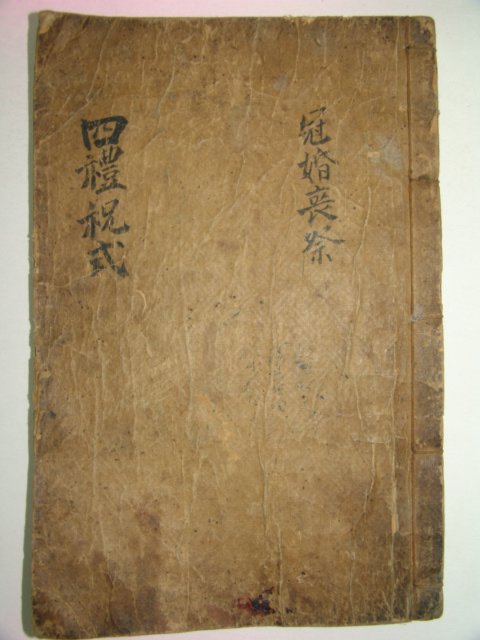 冠婚喪祭
四禮祝式